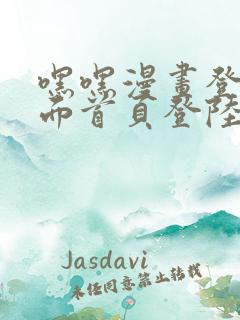 嘿嘿漫畫登
而首頁登陸
Jasdavi
未经同意禁止转载